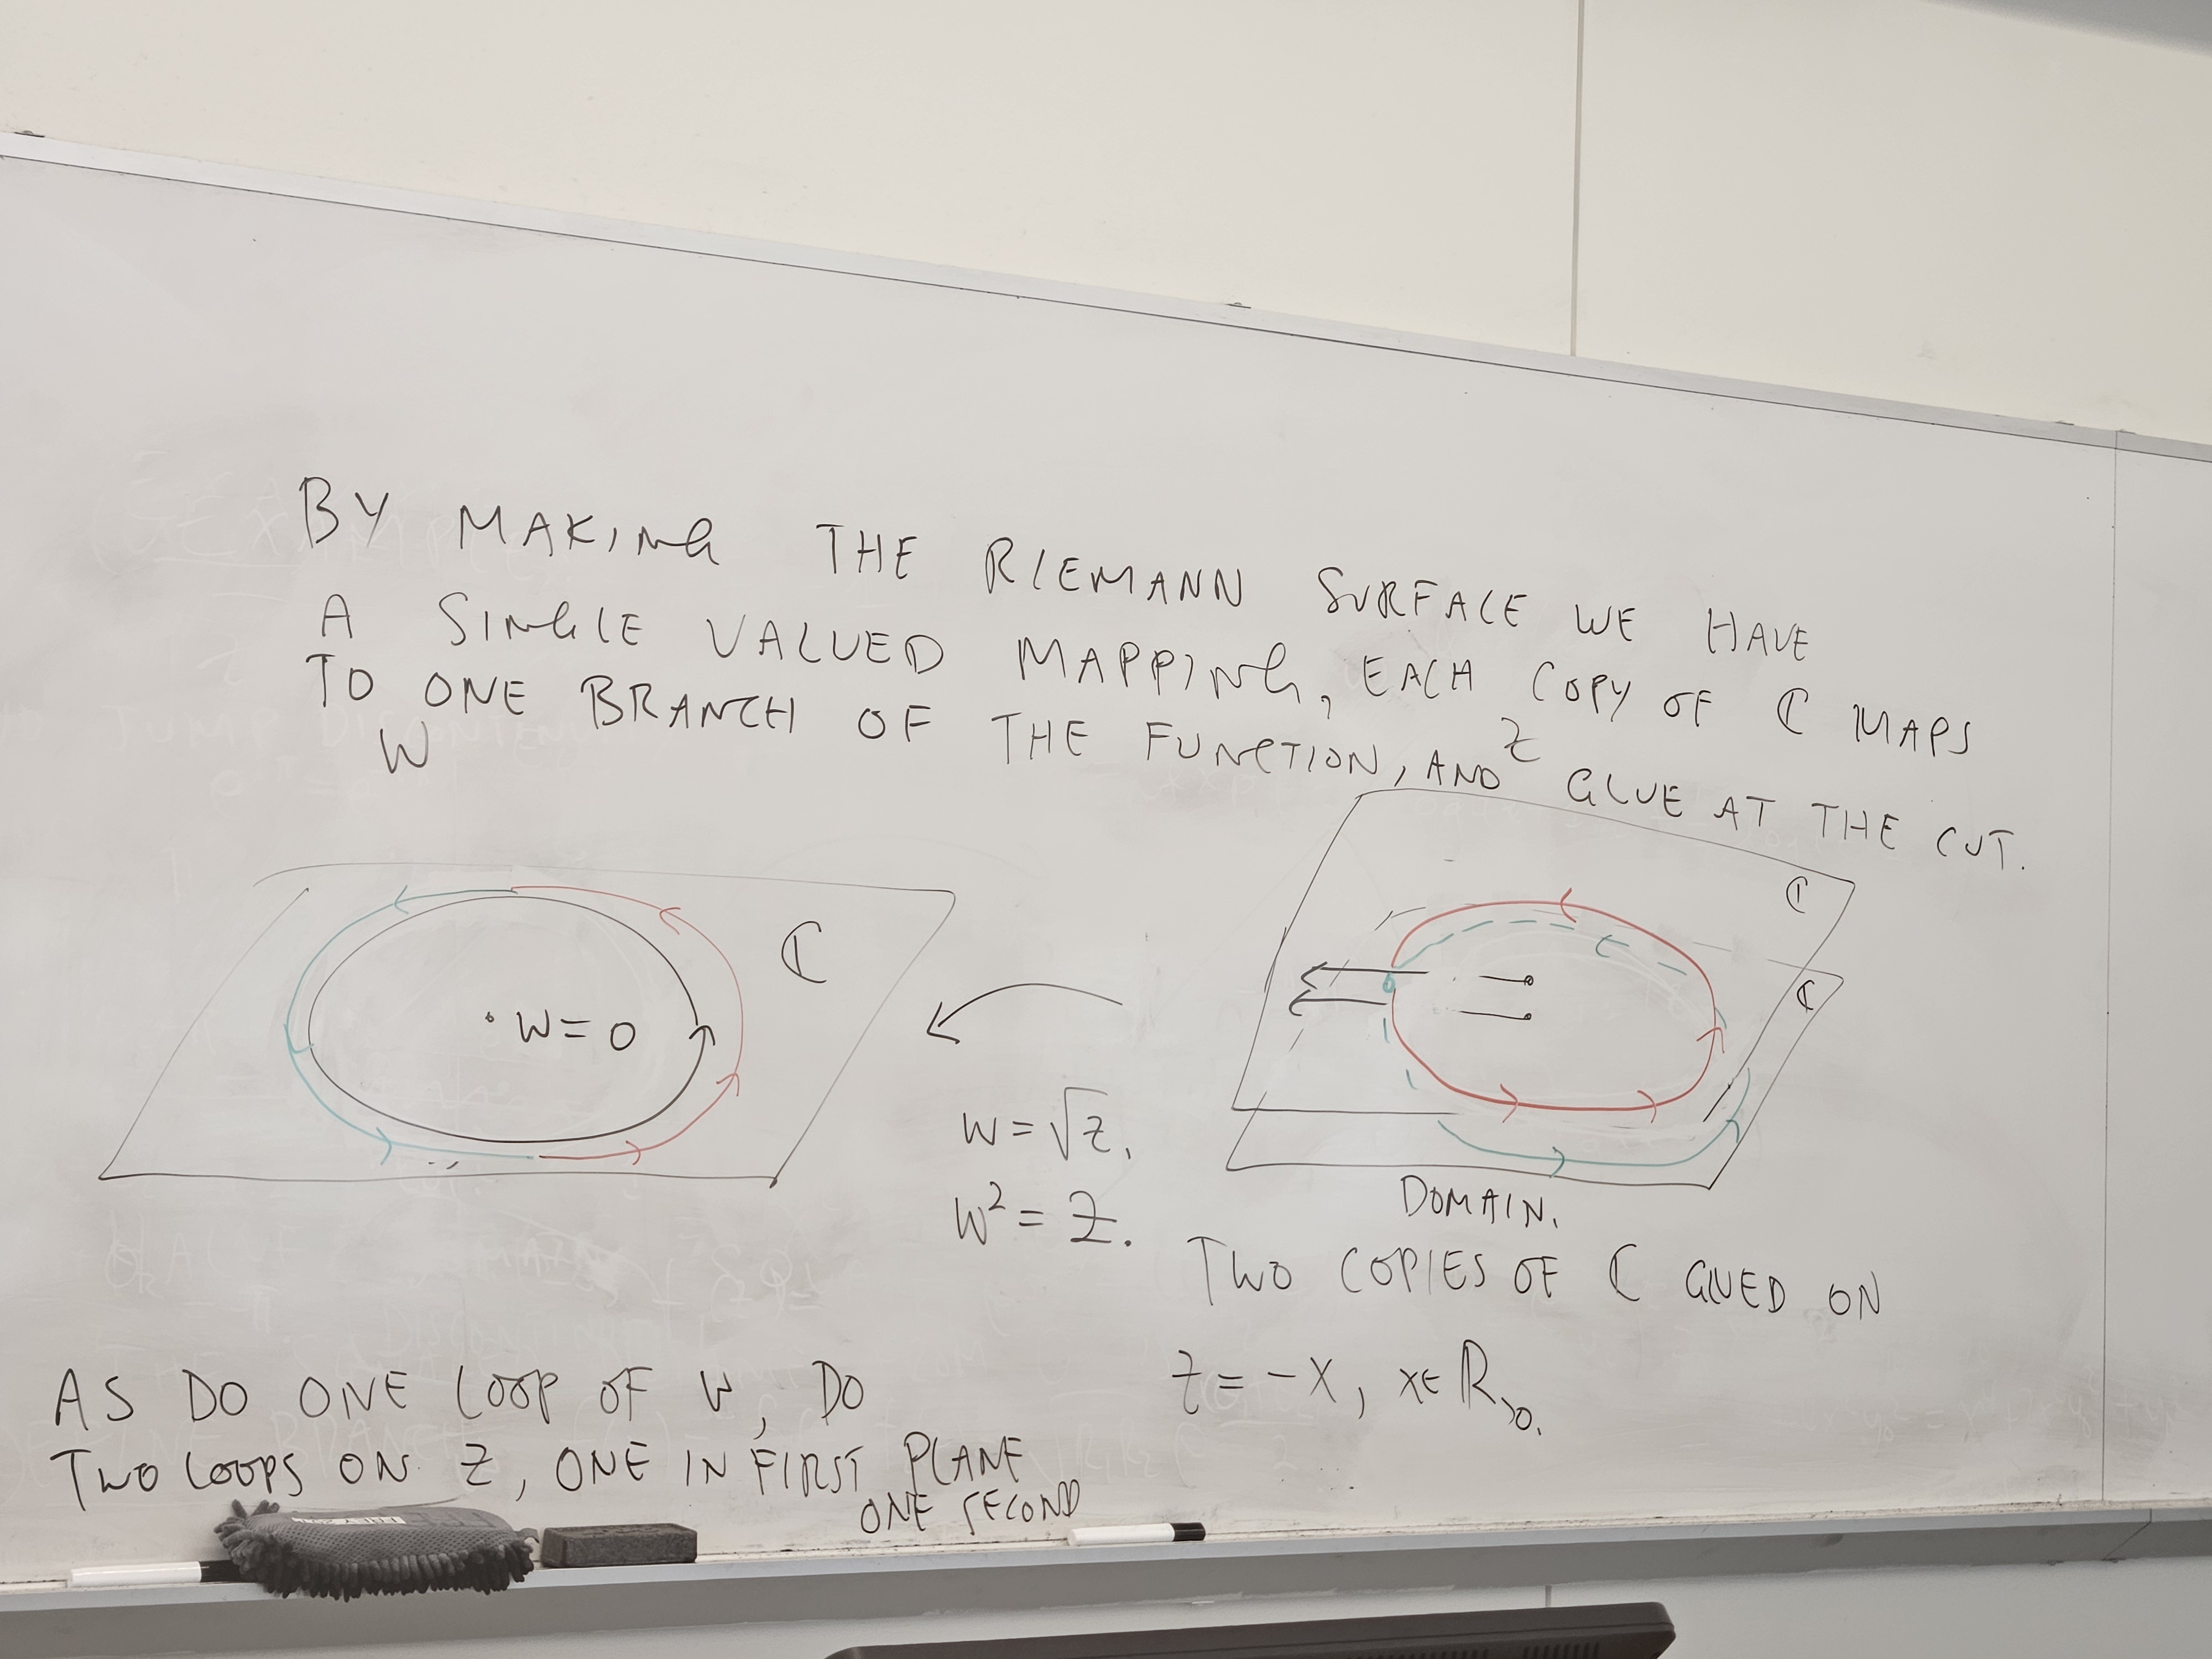 BY MAKING THE RIEMANN SURFACE WE HAVE
A SINGLE VALUED MAPPING, EACH COPY OF ℂ MAPS
TO ONE BRANCH OF THE FUNCTION, AND GLUE AT THE CUT.
W
Z
ℂ
W = 0
ℂ
ℂ
W = √Z.
W² = Z.
DOMAIN.
TWO COPIES OF ℂ GLUED ON
Z = -X, X ∈ ℝ>0.
AS DO ONE LOOP OF W, DO
TWO LOOPS ON Z, ONE IN FIRST PLANE
ONE SECOND